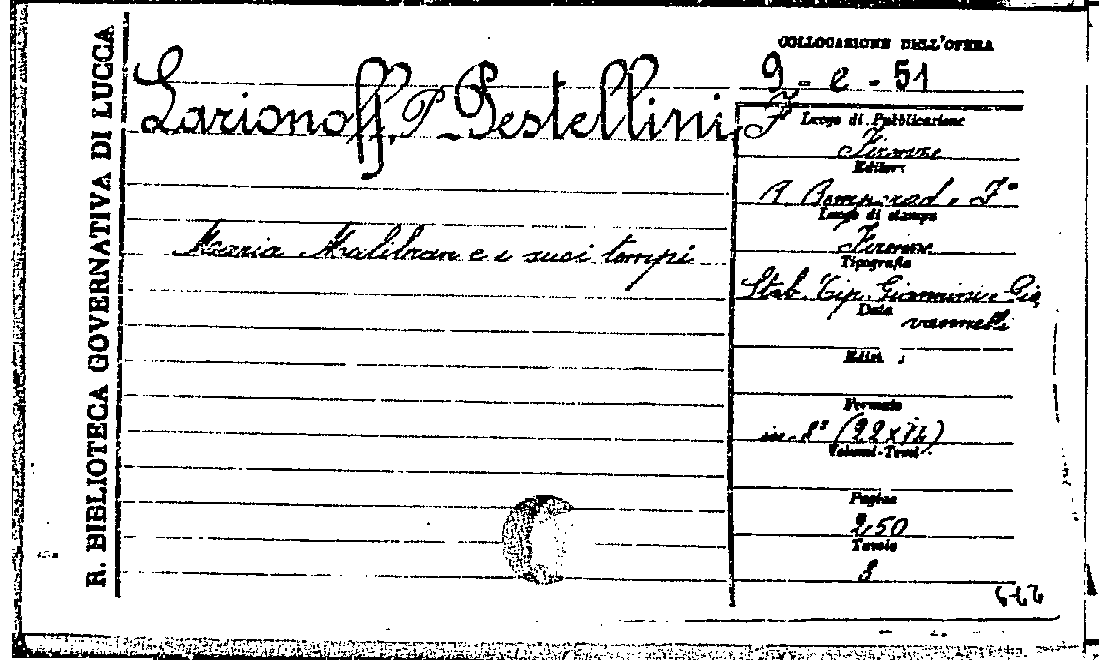 R. BIBLIOTECA GOVERNATIVA DI LUCCA
COLLOCAZIONE DELL'OPERA
9 - e - 51
Larionoff, P - Pestellini, F
Luogo di Pubblicazione
Firenze
Editore
R. Bemporad e F°
Luogo di stampa
Maria Malibran e i suoi tempi
Firenze
Tipografia
Stab. Tip. Giannini e Gio
Data
vannelli
Ediz
Formato
in-8° (22 x )
Volumi-Tomi
Pagine
250
Tavole
8